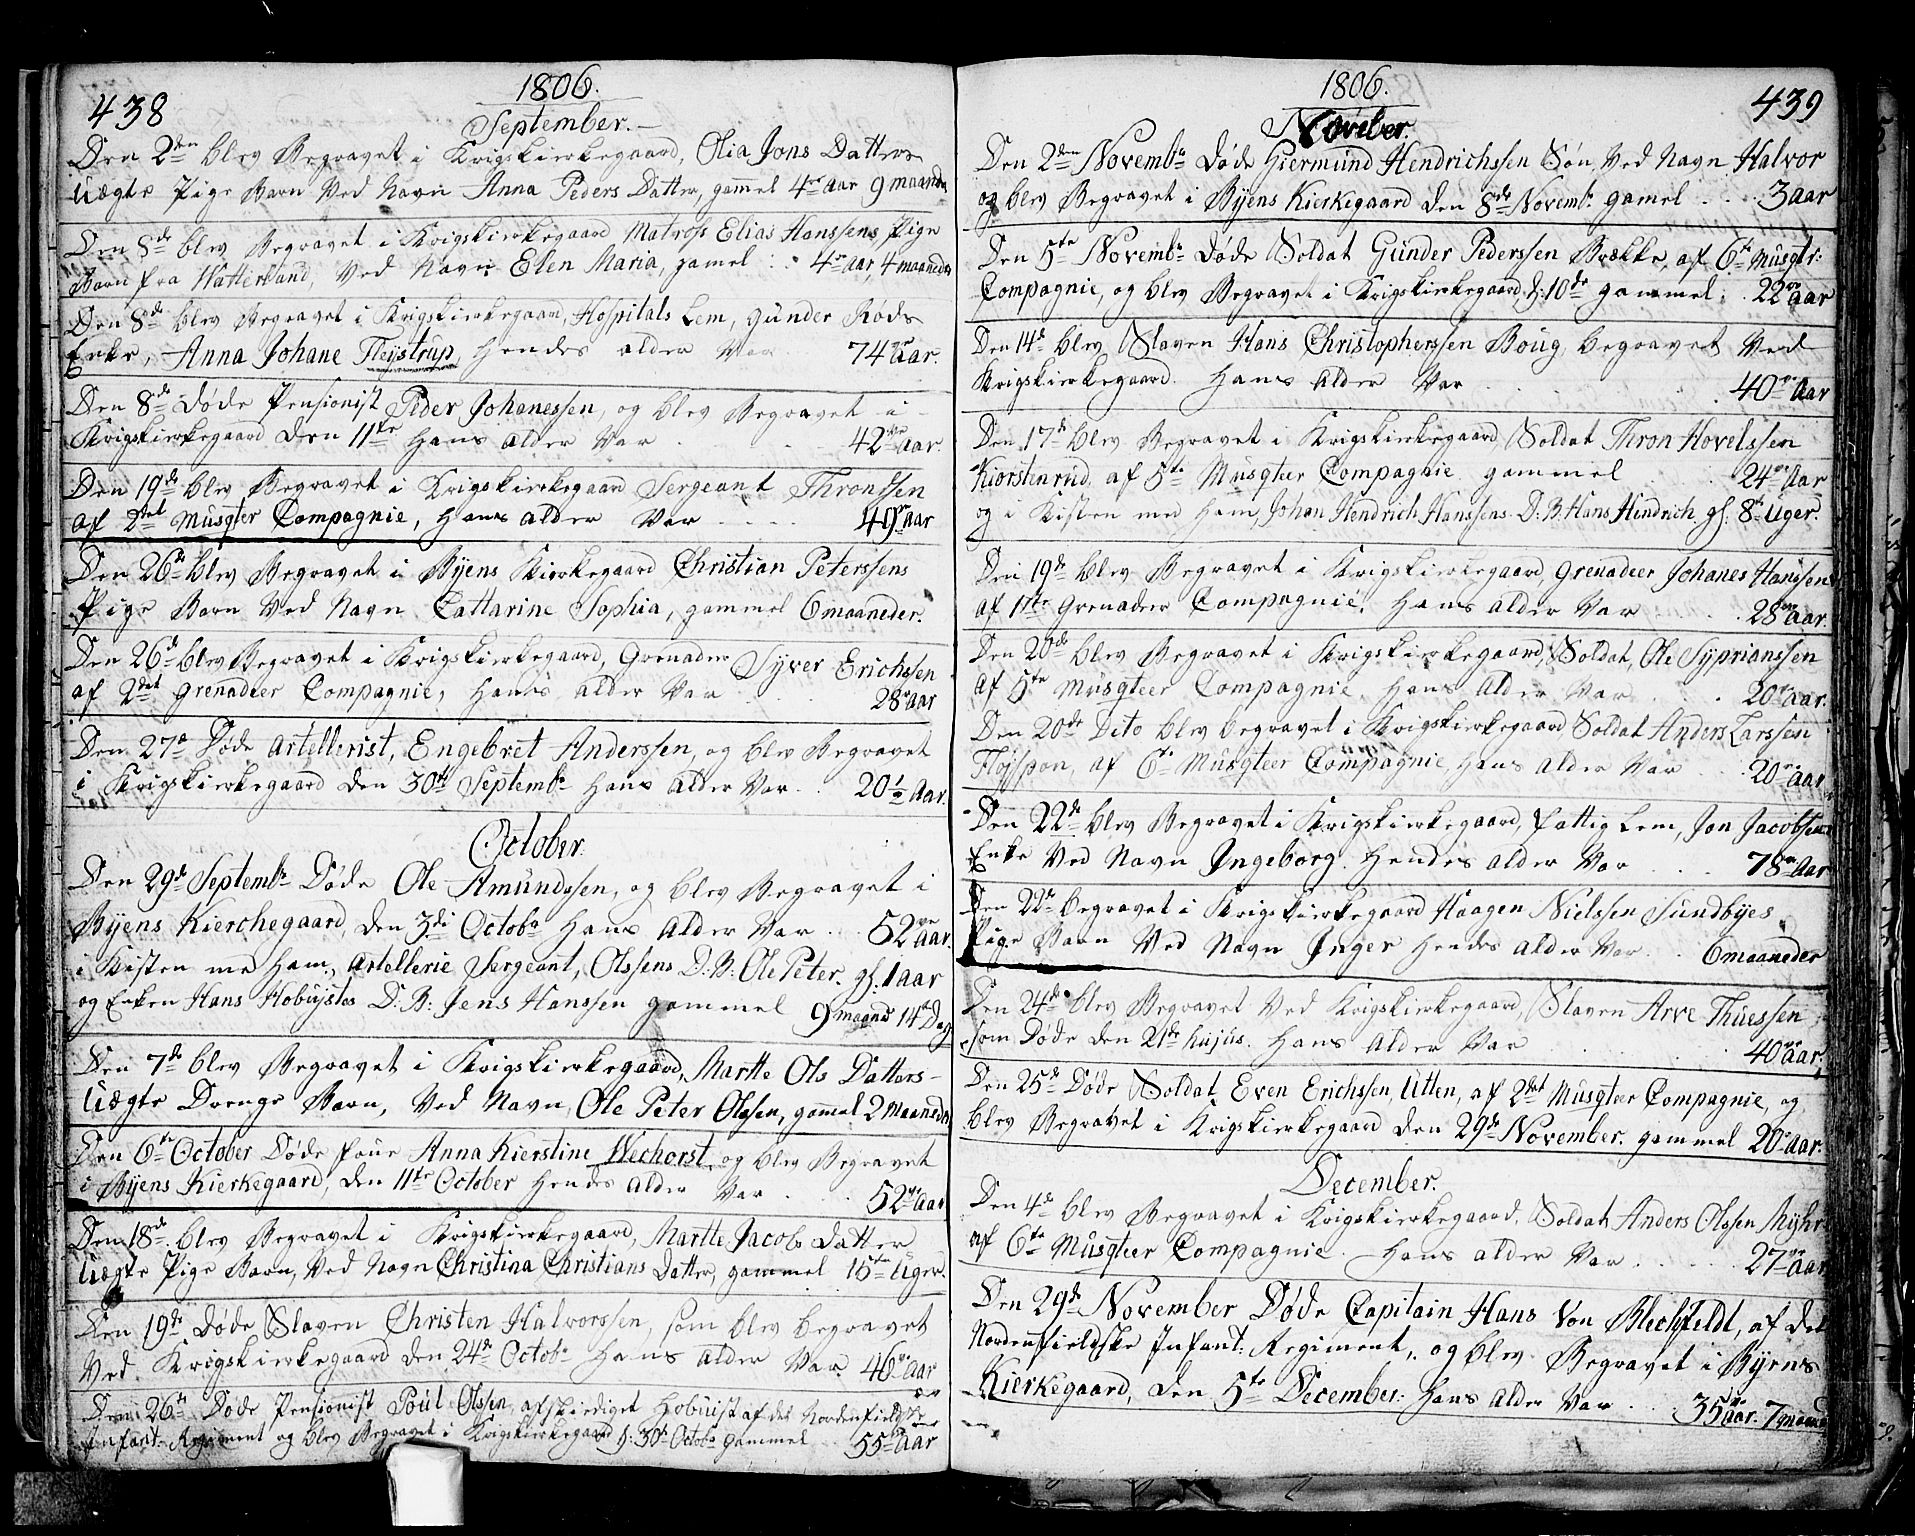 438
1806.
September.
Den 2den blev Begravet i Krigskirkegaard, Olia Jons Datters
Uægte Pige Barn Ved Navn Anna Peders Datter, gamel 4re Aar 9 maaneder
Den 8de blev Begravet i Krigskirkegaard Matross Elias Hanssens Pige
Barn fra Watterland, Ved Navn Elen Maria, gamel . . 4re Aar, 4 maaneder
Den 8de blev Begravet i Krigskirkegaard, Hospitals Lem, Gunder Röds
Enke, Anna Johane Fleystrup, Hendes alder Var 74re Aar.
Den 8de Döde Pensionist Peder Johanessen, og blev Begravet i
Krigskirkegaard Den 11te Hans alder Var . . 42re Aar.
Den 19de blev Begravet i Krigskirkegaard Sergeant Thronssen
af 2det Musqter Compagnie, Hans alder Var . . . 49re Aar
Den 26de blev Begravet i Byens Kirkegaard Christian Peterssens
Pige Barn Ved Navn Cattarine Sophia, gammel 6 maaneder.
Den 26de blev Begravet i Krigskirkegaard, Grenader Syver Erichssen
af 2det Grenadeer Compagnie, Hans alder Var . . 28re Aar
Den 27de Döde Artellerist, Engebret Anderssen, og blev Begravet
i Krigskirkegaard den 30te Septembr Hans Alder Var . . 20 1/2 Aar.
October.
Den 29de Septembr Döde Ole Amundssen, og blev Begravet i
Byens Kierchegaard, den 3die Octobr Hans Alder Var . . 52re Aar.
i Kisten me Ham, Artellerie Sergeant, Olssens D: B: Ole Peter. gl. 1 aar
og Enken Hans Hobuistes D: B: Jens Hanssen gammel 9 maand 14 Dag
Den 7de blev Begravet i Krigskirkegaard, Martte Ols Datters
Uægte Drenge Barn, Ved Navn, Ole Peter Olssen, gamel 2 maaneder
Den 6te October Döde Frue Anna Kierstine Wechorst, og blev Begravet
i Byens Kierkegaard, den 11te October Hendes alder Var . . . 52re Aar
Den 18de blev Begravet i Krigskirkegaard, Martte Jacobs Datter
Uægte Pige Barn, Ved Navn Christina Christians Datter, gammel 15ten Uger.
Den 19de Döde Slaven Christen Halvorssen, som blev begravet
Ved Krigskirkegaard den 24de Octobr Hans alder Var 46re Aar
Den 26de Döde Pensionist Poul Olssen, afskiediget Hobuist af det Nordenfieldske
Infant: Regiment og blev Begravet i Krigskirkegaard d: 30te Octobr gammel 55re Aar
439
1806.
November.
Den 2den Novembr Döde Giermund Hendrichssen Sön, Ved Navn Halvor
og blev Begravet i Byens Kierkegaard den 8de Novembr gamel . . . 3 aar
Den 5te Novembr Döde Soldat Gunder Pederssen Brække, af 6te Musqtr:
Compagnie, og blev Begravet i Krigskirkegaard d: 10de gammel . 22re aar
Den 14de blev Slaven Hans Christopherssen Boug, begravet Ved
Krigskirkegaard. Hans Alder Var . . . 40re Aar
Den 17de blev Begravet i Krigskirkegaard, Soldat Thron Hovelssen
Kiorstenrud, af 5te Musqteer Compagnie gammel . . 24re Aar
og i Kisten med Ham, Johan Hendrich Hanssens D: B: Hans Hindrich gl. 8te Uger.
Den 19de blev Begravet i Krigskirkegaard, Grenadeer Johanes Hanssen
af 1ste Grenadeer Compagnie. Hans alder Var . . . 28re aar.
Den 20de blev Begravet i Krigskirkegaard, Soldat, Ole Syprianssen
af 5te Musqteer Compagnie. Hans Alder Var . . . 20re aar.
Den 20de Dito blev begravet i Krigskirkegaard Soldat Anders Larssen
Flöjspon, af 6te Musqteer Compagnie, Hans alder Var . . 20re aar
Den 22de blev Begravet i Krigskirkegaard, Fattig Lem, Jon Jacobsens
Enke Ved Navn Ingeborg. Hendes alder Var . . . 78re Aar
Den 22de begravet i Krigskirkegaard Haagen Nielssen Sundbyes
Pige Barn Ved Navn Inger Hendes alder Var . . 6 maaneder
Den 24de blev Begravet Ved Krigskirkegaard, Slaven Arve Thuessen
som Döde den 21de hujus. Hans alder Var . . . 40re aar.
Den 25de Döde Soldat, Even Erichssen, Utten, af 2det Musqteer Compagnie, og
blev Begravet i Krigskirkegaard den 29de November. gammel 20re Aar.
December.
Den 4de blev Begravet i Krigskirkegaard, Soldat Anders Olssen Myhr
af 6te Musqteer Compagnie. Hans alder Var . . . 27re aar
Den 29de November Döde Capitain Hans Von Blechfeldt, af det
Nordenfieldske Infant: Regiment, og blev Begravet i Byens
Kierkegaard, den 5te December. Hans alder Var . . . 35re aar. 7 maand